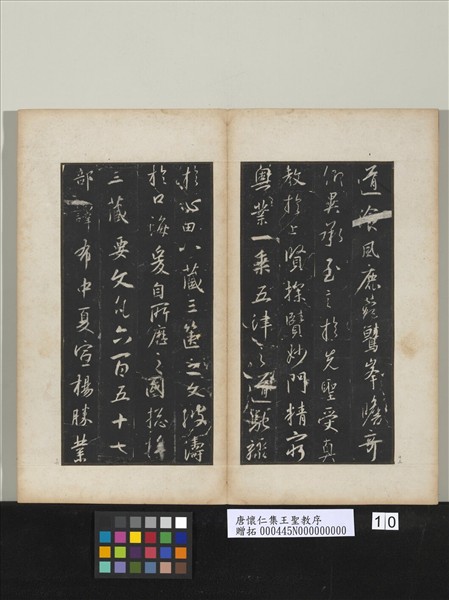 道飡風鹿菀鷲峯瞻奇
仰異承至言於先聖受真
教於上賢探賾妙門精窮
奧業一乘五律之道馳驟
於心田八藏三篋之文波濤
於口海爰自所歷之國総將
三藏要文凡六百五十七
部譯布中夏宣楊勝業
唐懷仁集王聖教序
贈拓 000445N000000000
10